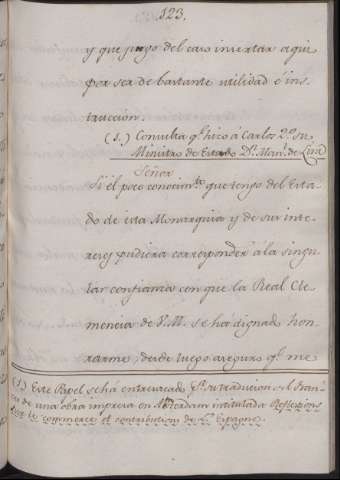 123.
y que juzgo del caso insertar aqui
por ser de bastante utilidad é ins-
truccion.
(1.) Consulta qe. hizo à Carlos 2º. su
Ministro de Estado Dn. Manl. de Lira
Señor
Si el poco conocimto. que tengo del Esta-
do de esta Monarquia y de sus inte-
reses pudiera corresponder à la singu-
lar confianza con que la Real Cle-
mencia de V.M. se há dignado hon-
rarme, desde luego aseguro qe. me
(1.) Este Papel se há entresacado su traducion el Fran-
ces de una obra impresa en Amsterdam intitulada Reflexions
sur le commerce et contributions de L' Espagne.